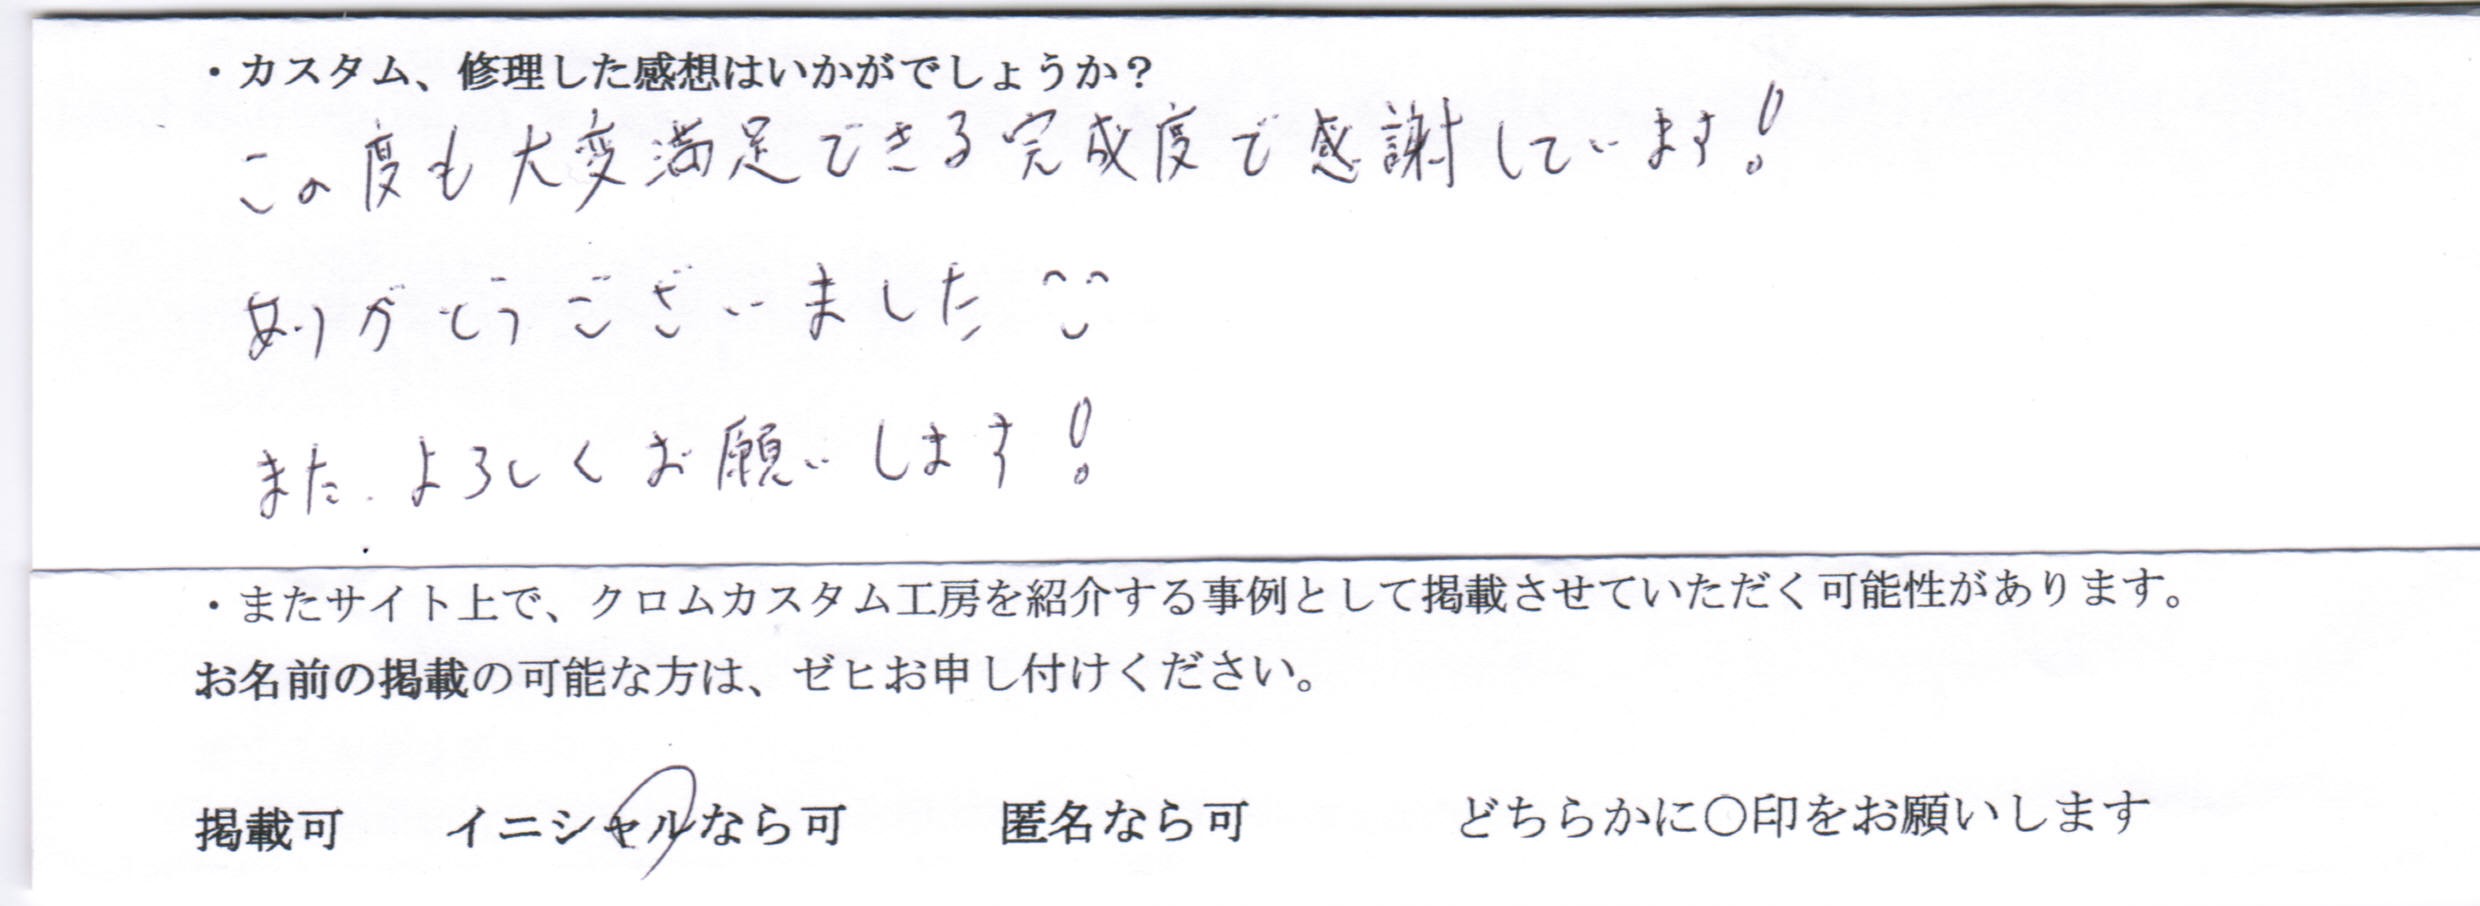 ・カスタム、修理した感想はいかがでしょうか？
この度も大変満足できる完成度で感謝しています！
ありがとうございました
また、よろしくお願いします！
・またサイト上で、クロムカスタム工房を紹介する事例として掲載させていただく可能性があります。
お名前の掲載の可能な方は、ゼヒお申し付けください。
掲載可 イニシャルなら可 匿名なら可 どちらかに〇印をお願いします